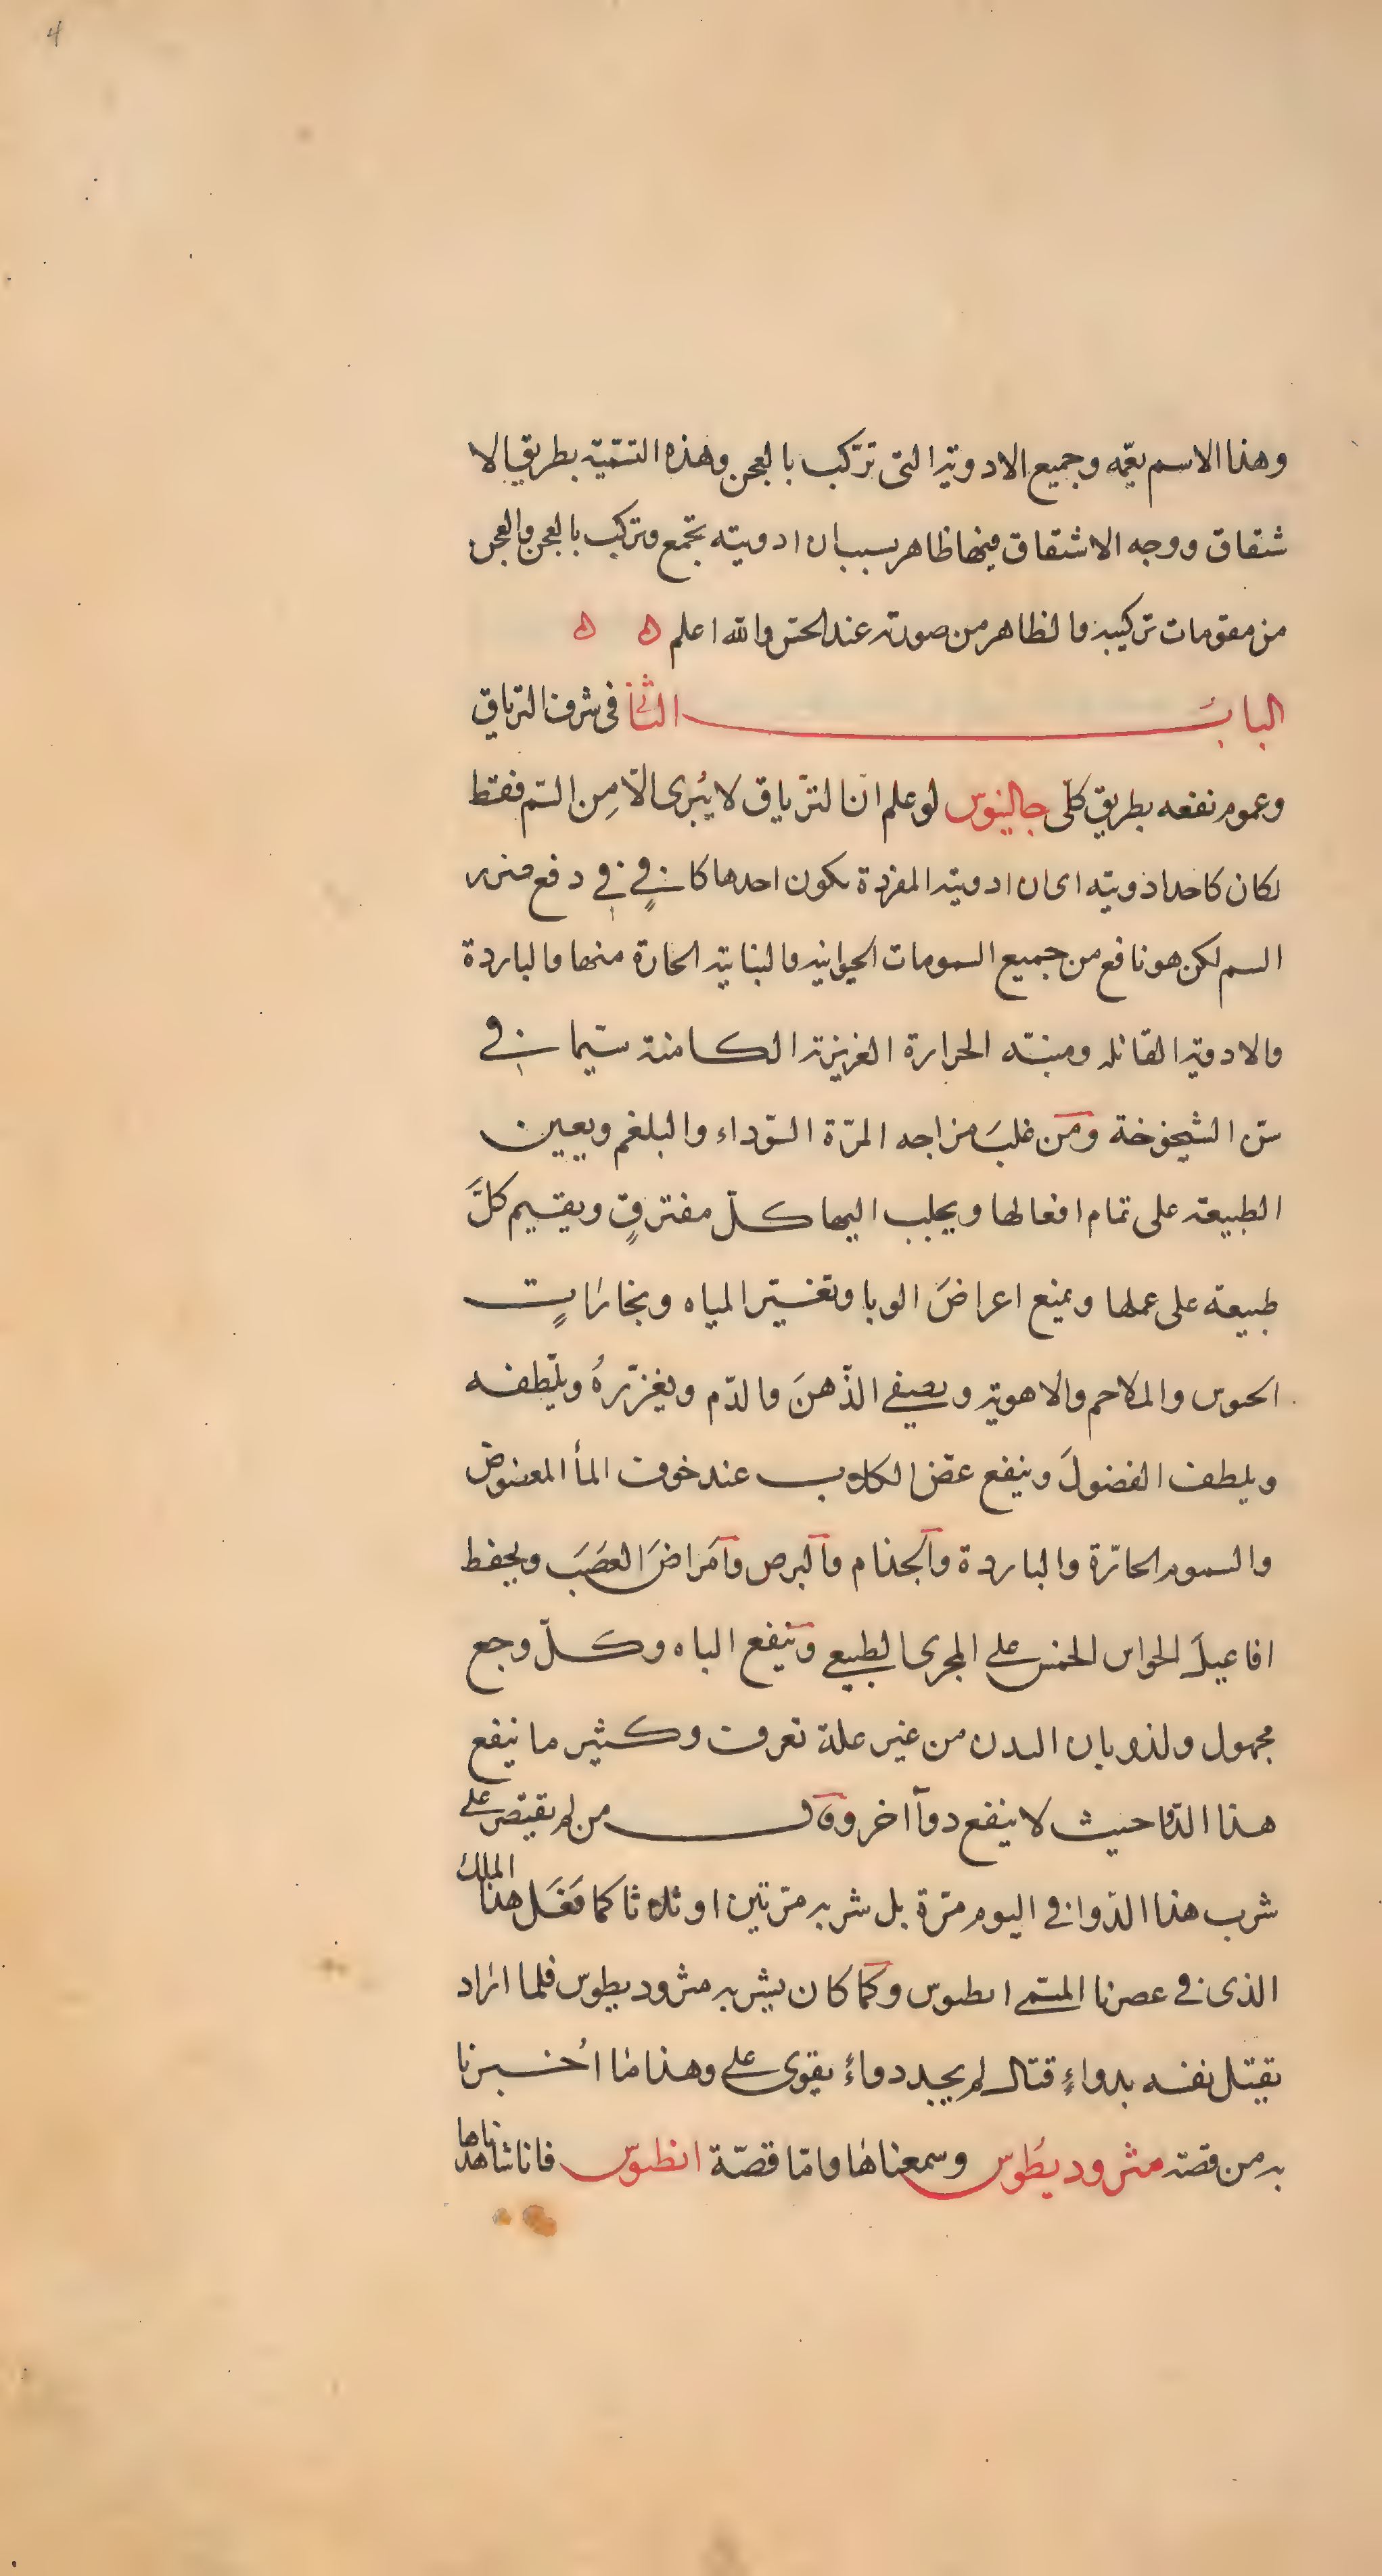 4
وهذا الاسم يعمّه وجميع الادوية التى تركّب بالعجن وهذه التسمّية بطريق الا
شتقاق ووجه الاشتقاق فيها ظاهر بسبب ان ادويته تجمع وتركب بالعجن والعجن
من مقومات تركيبه والظاهر من صورته عند الحسّ والله اعلم ه ه
البابُ الثانى فى شرف الترياق
وعموم نفعه بطريق كلّى جالينوس لو علم انّ الترّياق لا يُبرى الّا مِن السّم فقط
لكان كاحد ادويته اى ان ادويته المفردة يكون احدها كافٍ فى دفع ضرر
السم لكن هو نافع من جميع السمومات الحيوانيه والنباتية الحارة منها والباردة
والادوية القاتله ومنبّه الحرارة الغريزية الكامنة سيّما فى
سنّ الشيخوخة ومَن غلبَ مزاجه المرّة السّوداء والبلغم ويعين
الطبيعة على تمام افعالها ويجلب اليها كلّ مفترقٍ ويقسيم كلَّ
طبيعة على عملها ويمنع اعراضَ الوبا وتغيّير المياه وبخاراتٍ
الحبوس والملاحم والاهوية ويصفى الذّهنَ والدّم ويغزّرهُ ويلّطفه
ويلطف الفضولَ وينفع عضّ الكلاب عند خوف المأ المعضوض
والسموم الحارّة والباردة والجذام والبرص وامَراضَ العصَبَ ويحفظ
افاعيلَ الحواس الخمس على المجرى الطبيعى وينفع الباه وكلّ وجع
مجهول ولذوبان البدن من غير علة تعرف وكثير ما ينفع
هذا الدّوا حيث لا ينفع دوآ اخر وقال من لم يقتصر على
شرب هذا الدّوا فى اليوم مرّة بل شربه مرّتين او ثلاثا كما فَعَل هذا الملك
الذى فى عصرنا المسّمى انطبوس وكما كان يشربه مثروديطوس فلما اراد
يقتل نفسه بدواءٍ قتال لم يجد دواءً يقوى على وهذا ما اُخبرنا
به من قصة مثروديطُوس وسمعناها وامّا قصّة انطبوس فانا شاهدناها